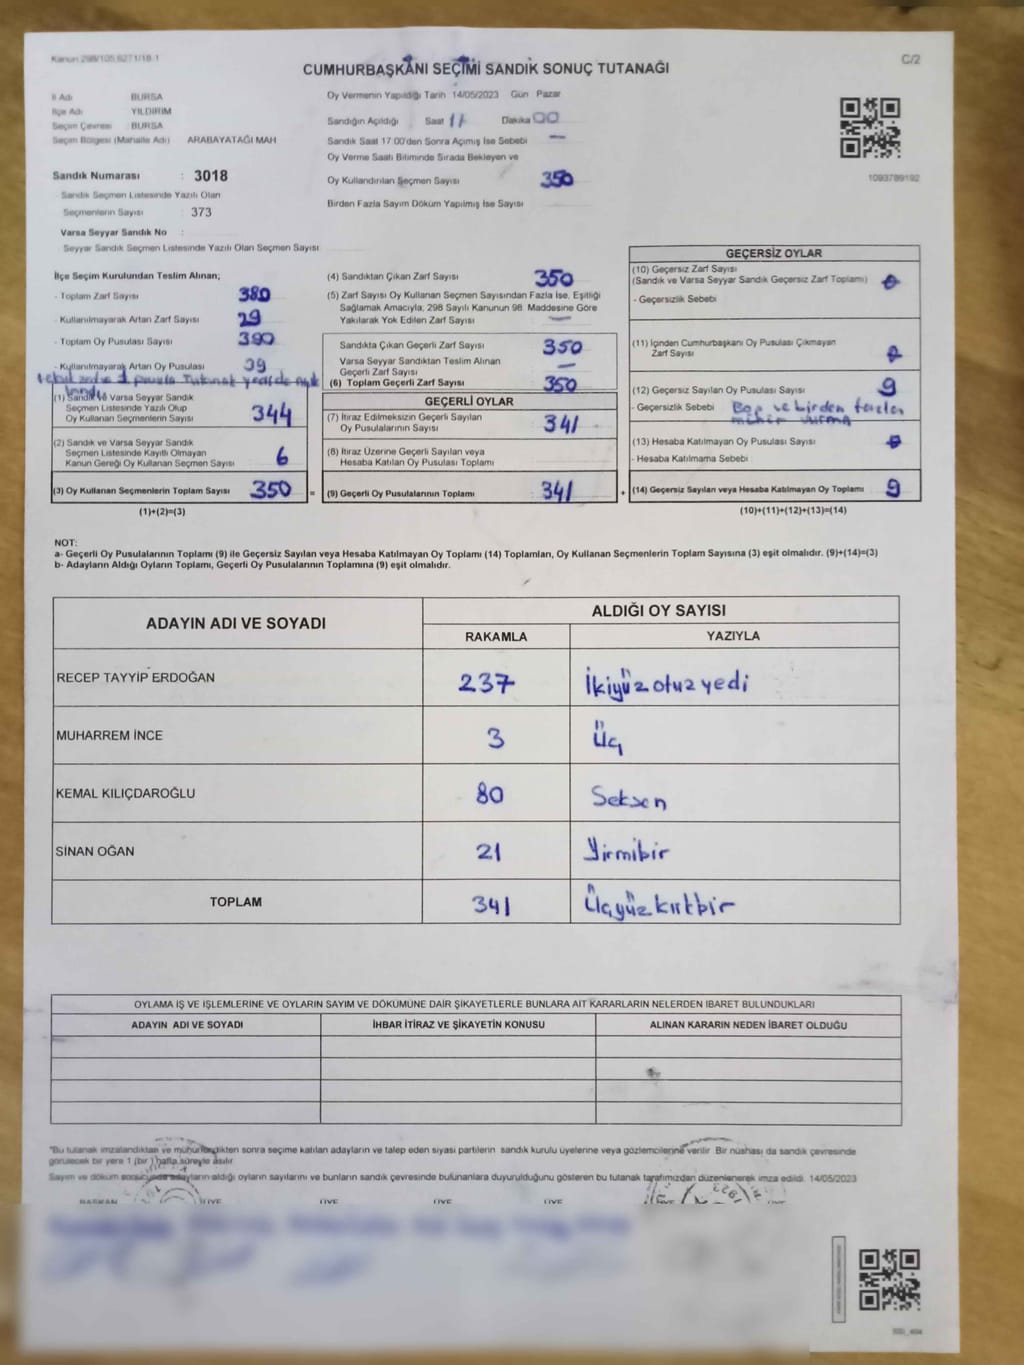 Kanun 298/105,6271/18-1
C/2
CUMHURBAŞKANI SEÇİMİ SANDIK SONUÇ TUTANAĞI
İl Adı BURSA
İlçe Adı YILDIRIM
Seçim Çevresi BURSA
Seçim Bölgesi (Mahalle Adı) : ARABAYATAĞI MAH
Sandık Numarası : 3018
- Sandık Seçmen Listesinde Yazılı Olan
Seçmenlerin Sayısı : 373
Varsa Seyyar Sandık No :
- Seyyar Sandık Seçmen Listesinde Yazılı Olan Seçmen Sayısı :
Oy Vermenin Yapıldığı Tarih 14/05/2023 Gün Pazar
Sandığın Açıldığı Saat 17 Dakika 00
Sandık Saat 17.00'den Sonra Açımış İse Sebebi —
Oy Verme Saati Bitiminde Sırada Bekleyen ve
Oy Kullandırılan Seçmen Sayısı 350
Birden Fazla Sayım Döküm Yapılmış İse Sayısı
1093789192
İlçe Seçim Kurulundan Teslim Alınan;
- Toplam Zarf Sayısı 380
- Kullanılmayarak Artan Zarf Sayısı 29
- Toplam Oy Pusulası Sayısı 390
- Kullanılmayarak Artan Oy Pusulası 39
(1) Sandık Ve Varsa Seyyar Sandık
Seçmen Listesinde Yazılı Olup
Oy Kullanan Seçmenlerin Sayısı 344
(2) Sandık ve Varsa Seyyar Sandık
Seçmen Listesinde Kayıtlı Olmayan
Kanun Gereği Oy Kullanan Seçmen Sayısı 6
(3) Oy Kullanan Seçmenlerin Toplam Sayısı 350 =
(1)+(2)=(3)
(4) Sandıktan Çıkan Zarf Sayısı 350
(5) Zarf Sayısı Oy Kullanan Seçmen Sayısından Fazla İse, Eşitliği
Sağlamak Amacıyla, 298 Sayılı Kanunun 98. Maddesine Göre
Yakılarak Yok Edilen Zarf Sayısı —
Sandıkta Çıkan Geçerli Zarf Sayısı 350
Varsa Seyyar Sandıktan Teslim Alınan
Geçerli Zarf Sayısı —
(6) Toplam Geçerli Zarf Sayısı 350
GEÇERLİ OYLAR
(7) İtiraz Edilmeksizin Geçerli Sayılan
Oy Pusulalarının Sayısı 341
(8) İtiraz Üzerine Geçerli Sayılan veya
Hesaba Katılan Oy Pusulası Toplamı
(9) Geçerli Oy Pusulalarının Toplamı 341 +
GEÇERSİZ OYLAR
(10) Geçersiz Zarf Sayısı
(Sandık ve Varsa Seyyar Sandık Geçersiz Zarf Toplamı) 0
- Geçersizlik Sebebi
(11) İçinden Cumhurbaşkanı Oy Pusulası Çıkmayan
Zarf Sayısı 0
(12) Geçersiz Sayılan Oy Pusulası Sayısı 9
- Geçersizlik Sebebi Boş ve birden fazla
mühür vurma
(13) Hesaba Katılmayan Oy Pusulası Sayısı 0
- Hesaba Katılmama Sebebi
(14) Geçersiz Sayılan veya Hesaba Katılmayan Oy Toplamı 9
(10)+(11)+(12)+(13)=(14)
NOT:
a- Geçerli Oy Pusulalarının Toplamı (9) ile Geçersiz Sayılan veya Hesaba Katılmayan Oy Toplamı (14) Toplamları, Oy Kullanan Seçmenlerin Toplam Sayısına (3) eşit olmalıdır. (9)+(14)=(3)
b- Adayların Aldığı Oyların Toplamı, Geçerli Oy Pusulalarının Toplamına (9) eşit olmalıdır.
ADAYIN ADI VE SOYADI ALDIĞI OY SAYISI
RAKAMLA YAZIYLA
RECEP TAYYİP ERDOĞAN 237 İkiyüzotuzyedi
MUHARREM İNCE 3 Üç
KEMAL KILIÇDAROĞLU 80 Seksen
SİNAN OĞAN 21 Yirmibir
TOPLAM 341 Üçyüzkırkbir
OYLAMA İŞ VE İŞLEMLERİNE VE OYLARIN SAYIM VE DÖKÜMÜNE DAİR ŞİKAYETLERLE BUNLARA AİT KARARLARIN NELERDEN İBARET BULUNDUKLARI
ADAYIN ADI VE SOYADI İHBAR İTİRAZ VE ŞİKAYETİN KONUSU ALINAN KARARIN NEDEN İBARET OLDUĞU
"Bu tutanak imzalandıktan ve mühürlendikten sonra seçime katılan adayların ve talep eden siyasi partilerin sandık kurulu üyelerine veya gözlemcilerine verilir. Bir nüshası da sandık çevresinde
görülecek bir yere 1 (bir) hafta süreyle asılır.
Sayım ve döküm sonucunda adayların aldığı oyların sayılarını ve bunların sandık çevresinde bulunanlara duyurulduğunu gösteren bu tutanak tarafımızdan düzenlenerek imza edildi. 14/05/2023
BAŞKAN ÜYE ÜYE ÜYE ÜYE